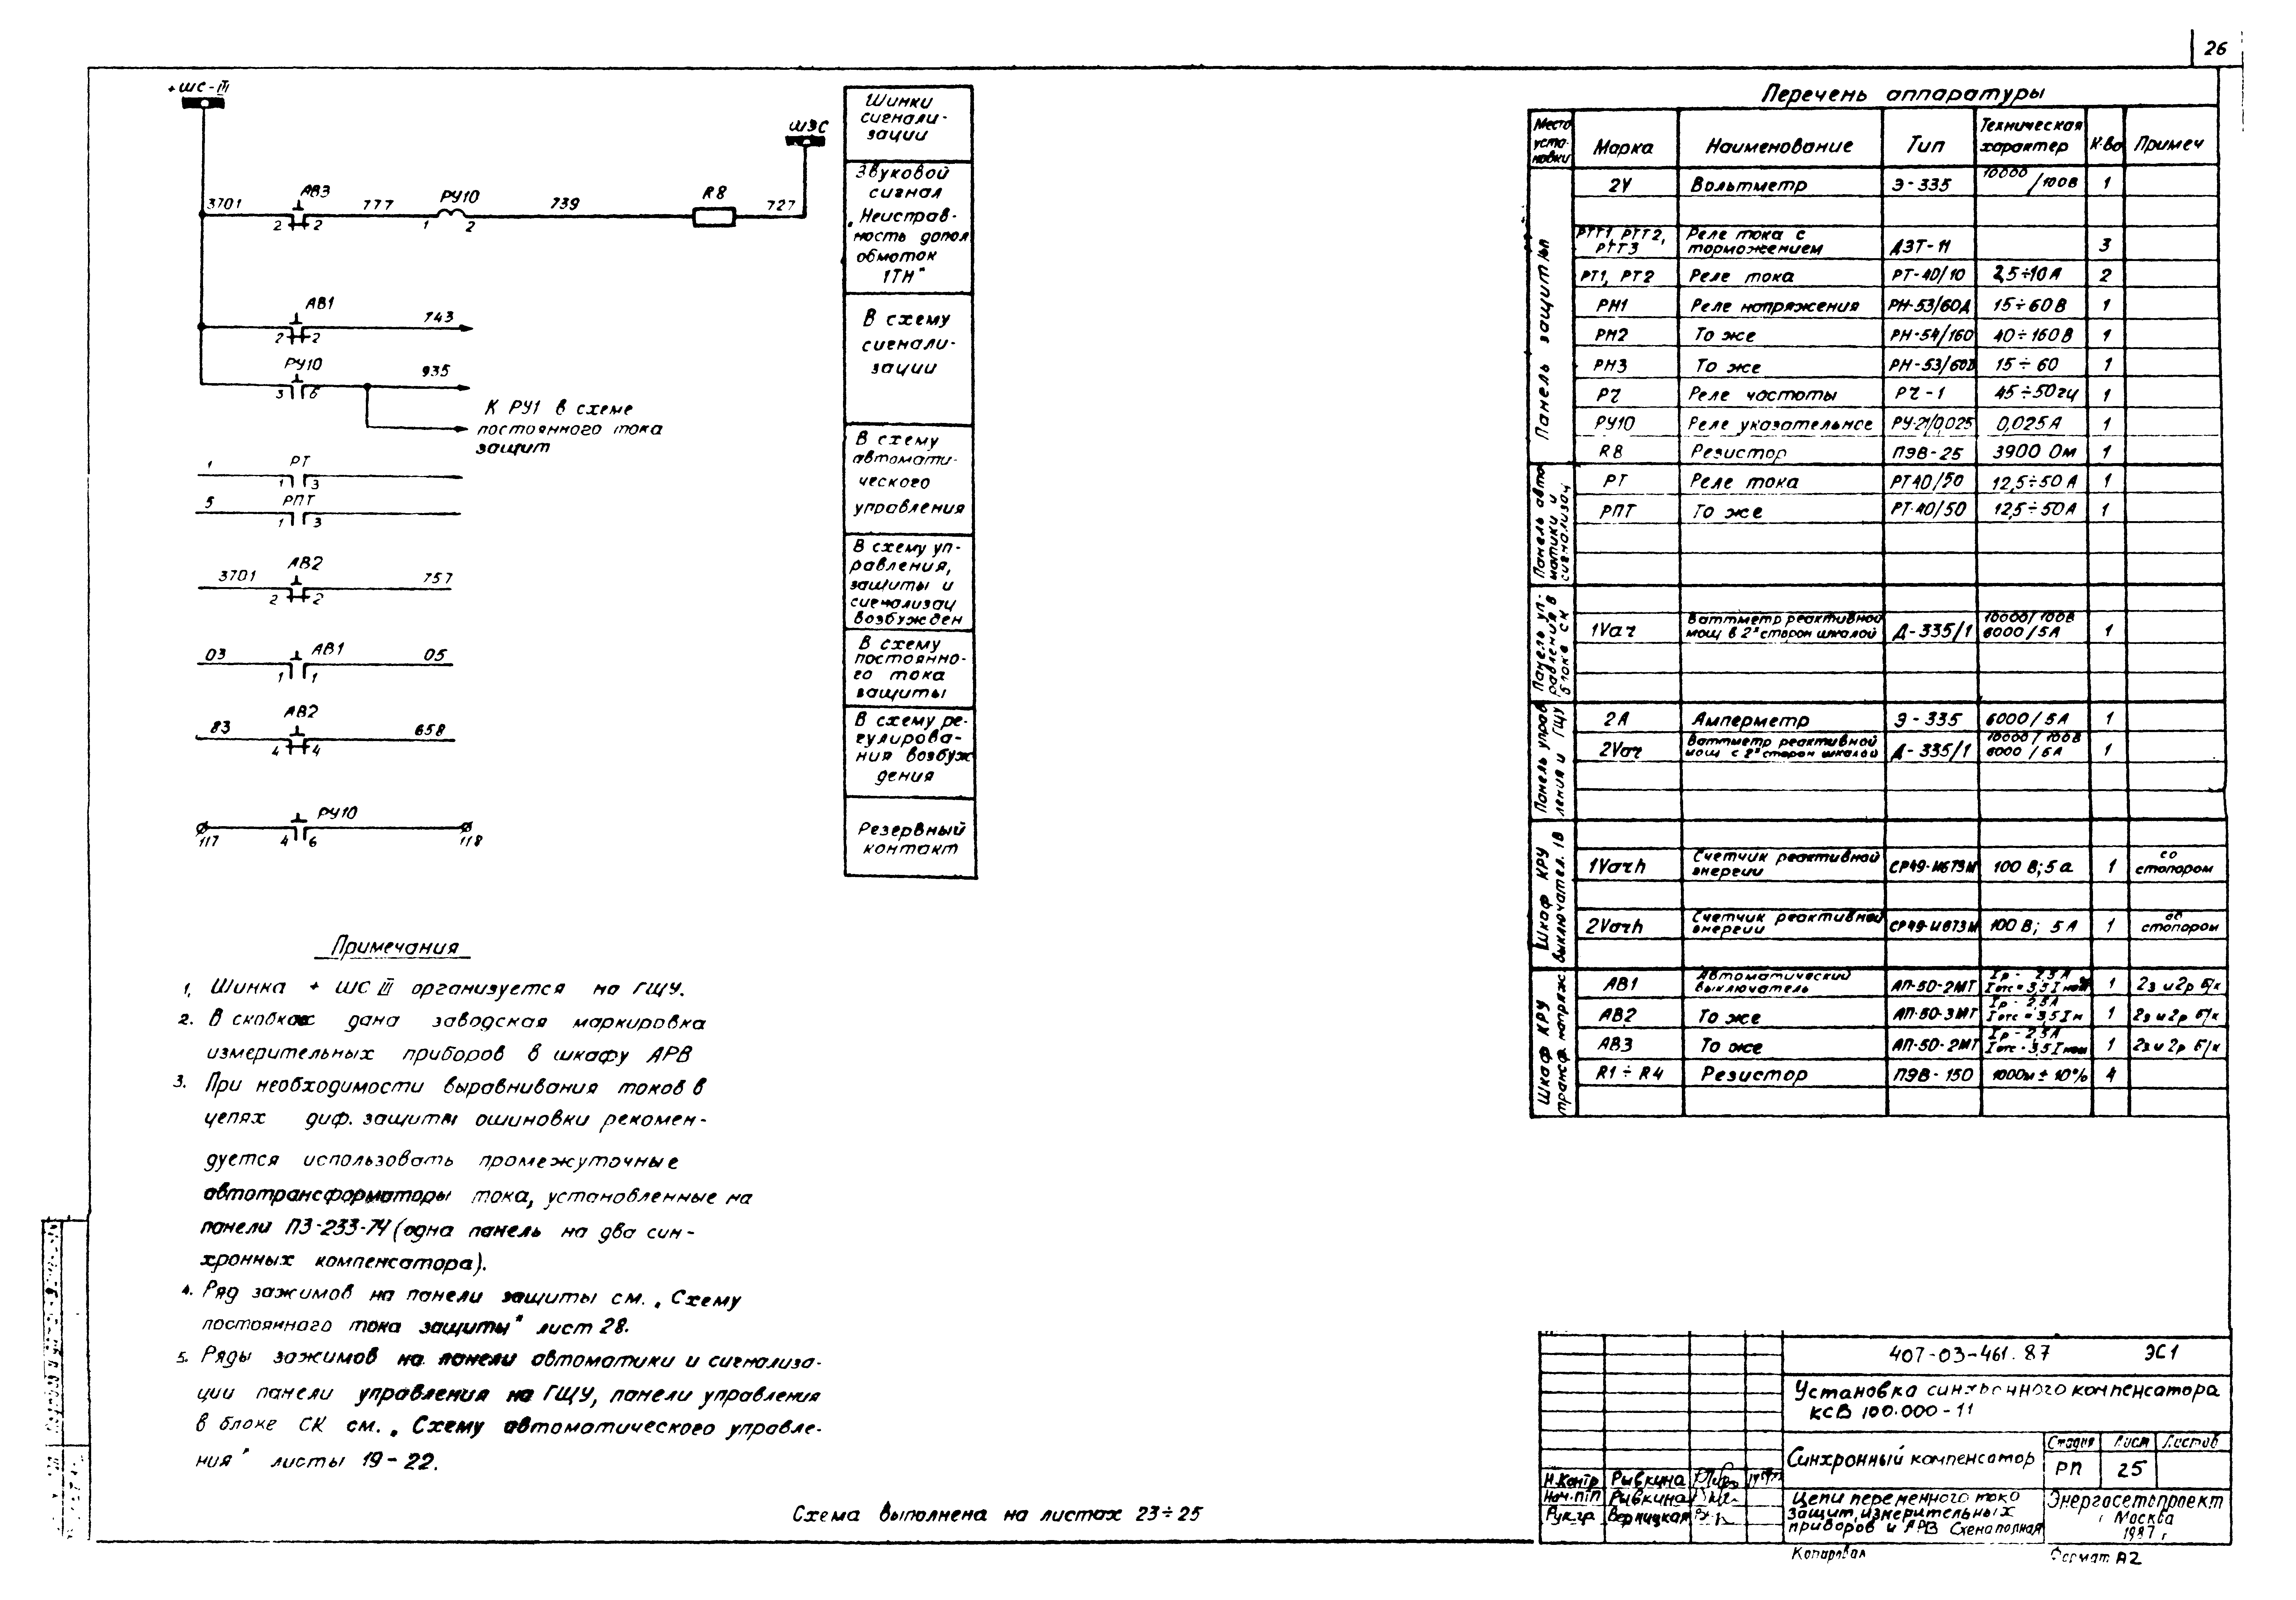 26
+ШС-III
ШЗС
3701
АВ3
777
РУ10
739
R8
727
2 2
1 2
АВ1
743
2 2
РУ10
935
3 6
К РУ1 в схеме
постоянного тока
защит
1 РТ
1 3
5 РПТ
1 3
3701 АВ2 757
2 2
03 АВ1 05
1 1
83 АВ2 658
4 4
РУ10
117 4 6 118
Шинки
сигнали-
зации
Звуковой
сигнал
„Неисправ-
ность допол
обмоток
1ТН"
В схему
сигнали-
зации
В схему
автомати-
ческого
управления
В схему уп-
равления,
защиты и
сигнализац
возбужден
В схему
постоянно-
го тока
защиты
В схему ре-
гулирова-
ния возбуж
дения
Резервный
контакт
Примечания
1. Шинка + ШС III организуется на ГЩУ.
2. В скобках дана заводская маркировка
измерительных приборов в шкафу АРВ
3. При необходимости выравнивания токов в
цепях диф. защиты ошиновки рекомен-
дуется использовать промежуточные
автотрансформаторы тока, установленные на
панели ПЗ-233-74 (одна панель на два син-
хронных компенсатора).
4. Ряд зажимов на панели защиты см. „Схему
постоянного тока защиты" лист 28.
5. Ряды зажимов на панели автоматики и сигнализа-
ции панели управления на ГЩУ, панели управления
в блоке СК см. „Схему автоматического управле-
ния" листы 19-22.
Схема выполнена на листах 23÷25
Перечень аппаратуры
Место установки Марка Наименование Тип Техническая характер К-во Примеч
Панель защиты
2V Вольтметр Э-335 10000/100В 1
РТТ1, РТТ2, РТТ3 Реле тока с торможением ДЗТ-11 3
РТ1, РТ2 Реле тока РТ-40/10 2,5÷10А 2
РН1 Реле напряжения РН-53/60Д 15÷60В 1
РН2 То же РН-54/160 40÷160В 1
РН3 То же РН-53/60Д 15÷60 1
РЧ Реле частоты РЧ-1 45÷50гц 1
РУ10 Реле указательное РУ-21/0,025 0,025А 1
R8 Резистор ПЭВ-25 3900 Ом 1
Панель автоматики и сигнализац
РТ Реле тока РТ40/50 12,5÷50А 1
РПТ То же РТ-40/50 12,5÷50А 1
Панель управления в блоке СК
1Var Ваттметр реактивной мощ в 2х сторон шкалой Д-335/1 10000/100В 6000/5А 1
Панель управления и ГЩУ
2А Амперметр Э-335 6000/5А 1
2Var Ваттметр реактивной мощ с 2х сторон шкалой Д-335/1 10000/100В 6000/5А 1
Шкаф КРУ выключател. 1В
1Varh Счетчик реактивной энергии СР49-И673М 100 В; 5а 1 со стопором
2Varh Счетчик реактивной энергии СР49-И673М 100 В; 5А 1 со стопором
Шкаф КРУ трансф. напряж.
АВ1 Автоматический выключатель АП-50-2МТ Iр- 2,5А Iотс=3,5Iном 1 2з и 2р б/к
АВ2 То же АП-50-3МТ Iр- 2,5А Iотс=3,5Iн 1 2з и 2р б/к
АВ3 То же АП-50-2МТ Iр- 2,5А Iотс-3,5Iном 1 2з и 2р б/к
R1÷R4 Резистор ПЭВ-150 100Ом±10% 4
407-03-461.87 ЭС1
Установка синхронного компенсатора
КСВ 100.000-11
Синхронный компенсатор
Стадия Лист Листов
РП 25
Н.Контр Рывкина
Нач.ПТП Рывкина
Рук.гр. Верницкая
Цепи переменного тока
защит, измерительных
приборов и АРВ Схема полная
Энергосетьпроект
г Москва
1987г
Копировал
Формат А2